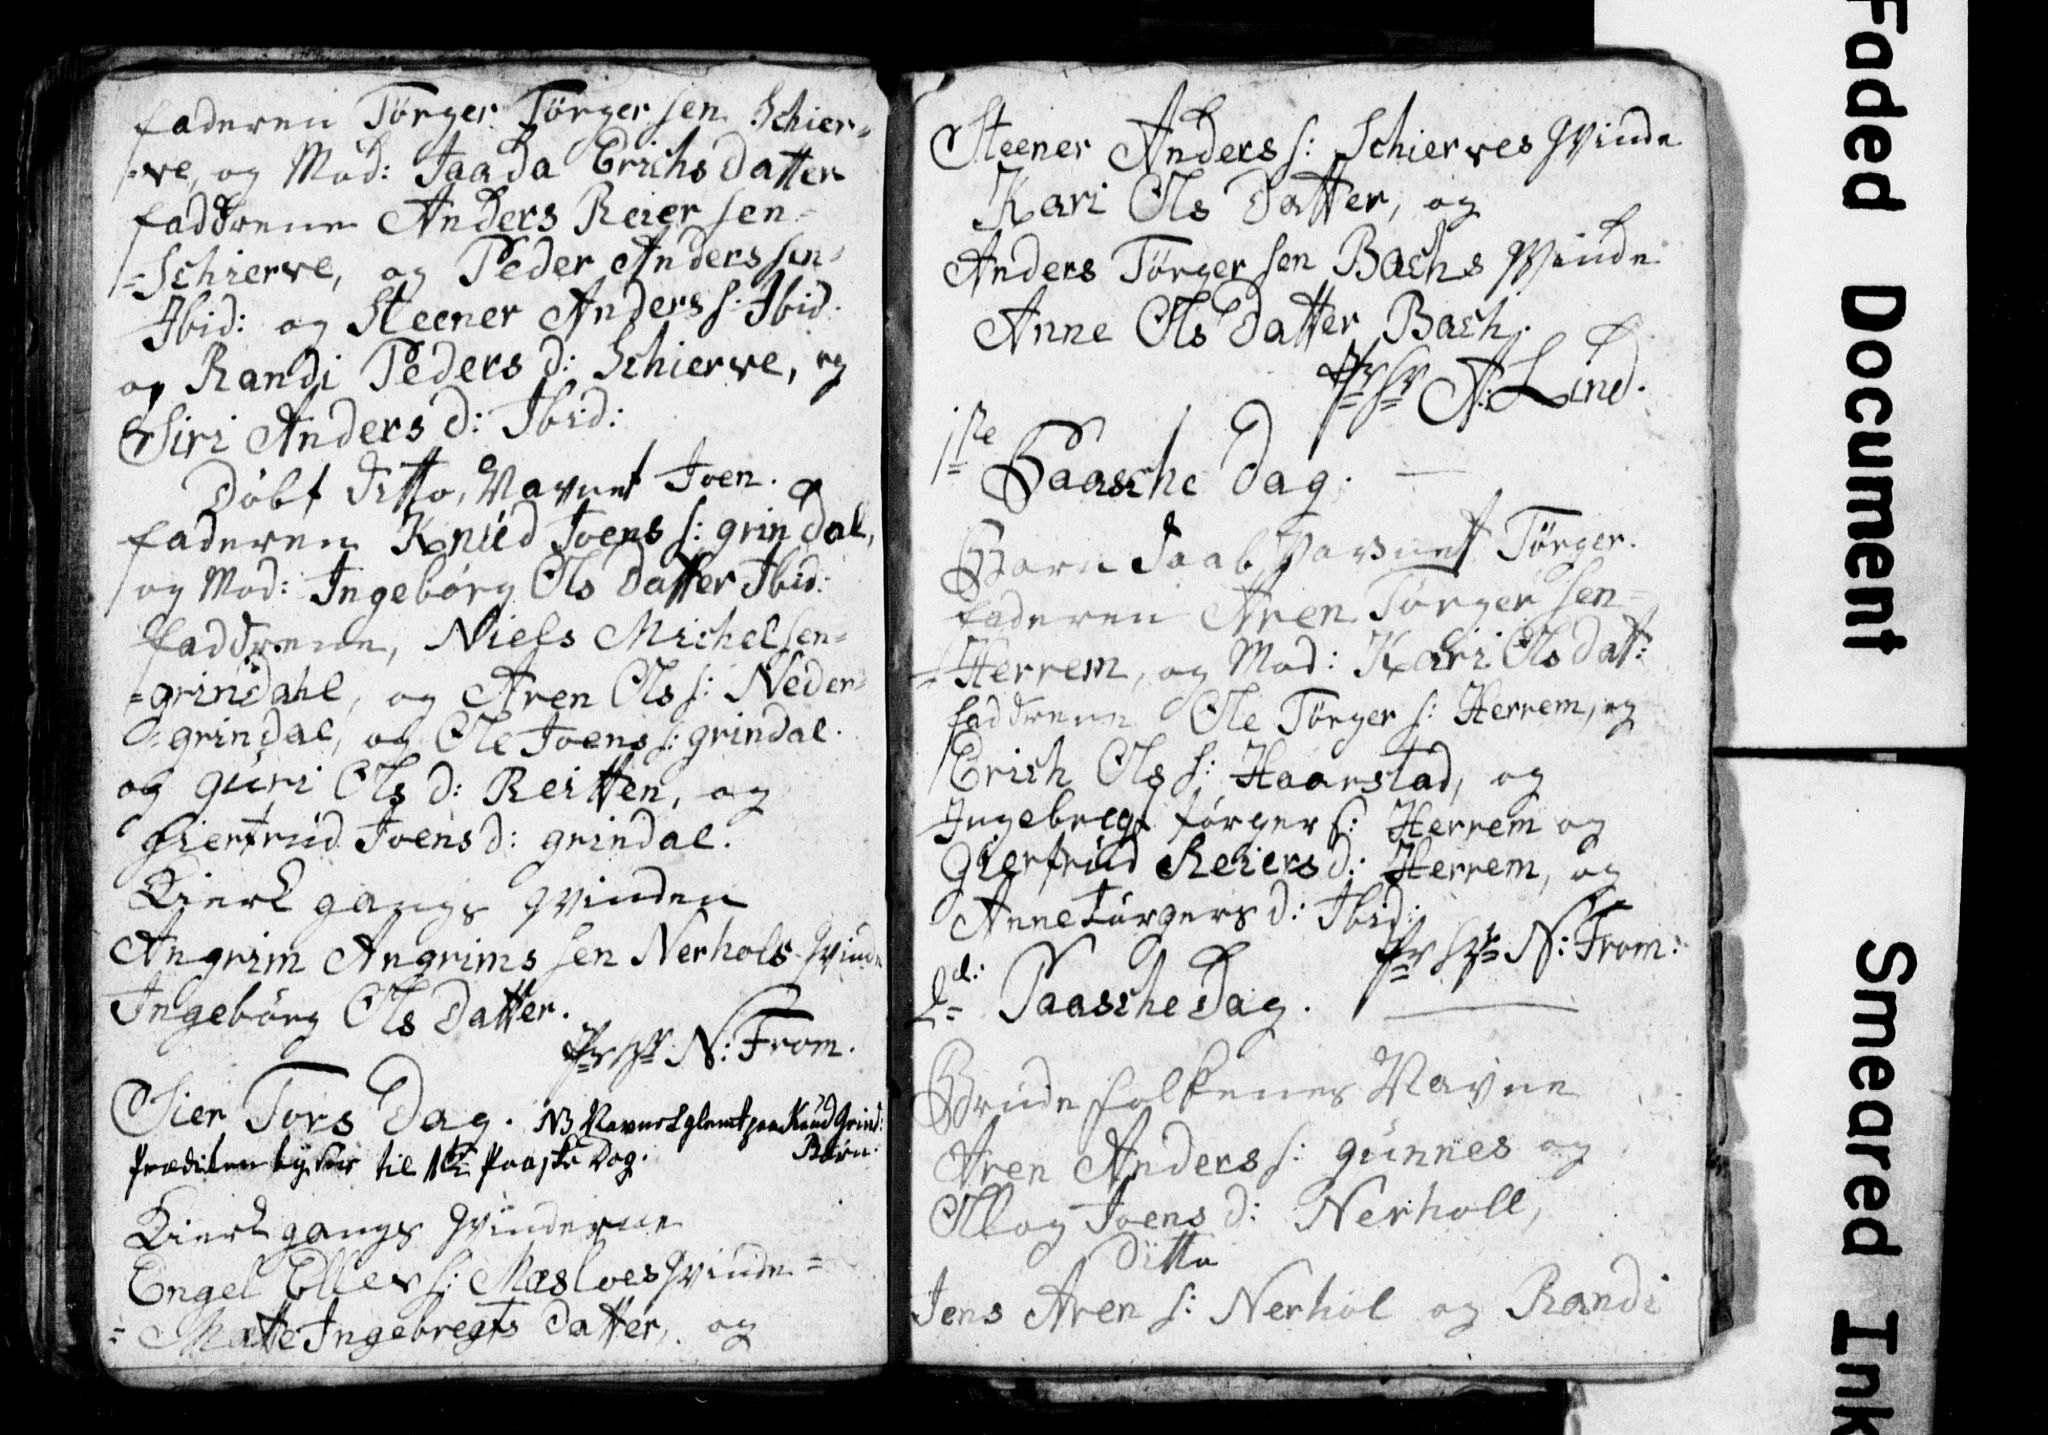 faderen Törger Törgersen Schier=
=ve, og Mod: Jaada Erichsdatter
faddrene Anders Reiersen=
=Schierve, og Peder Anderssen=
Ibid: og Steener Anders s: Ibid.
og Randi Peders d: Schierve, og
Siri Anders d: Ibid:
Döbt ditto, Navnet Joen.
faderen Knud Joens s: grindal,
og Mod: Ingebörg Ols Datter Ibid:
faddrene, Niels Michelsen=
=grindahl, og Aren Ols s: Neder=
=grindal, og Ole Joens s: grindal.
og guri Ols d: Reitten, og
Giertrud Joens d: grindal.
Kierk gangs qvinden
Angrim Angrims sen Nerhols qvinde
Ingebörg Ols Datter.
N: From.
Skier Tors Dag. NB Navnet glemt paa Knud Grind:
Børn.
til 1te Paaske Dag.
Kierk gangs qvinderne
Engel Eller s: Mæsloes qvinde=
=Matte Ingebregts Datter, og
Steener Anders s: Schierves qvinde
Kari Ols Datter, og
Anders Törgersen Bachs qvinde
Anne Ols Datter Bach.
A: Lind.
1ste
Paasche Dag.
Barn Daab, Navnet Törger.
faderen Aren Törgersen=
=Herrem, og Mod: Kari Ols Datt:
faddrene Ole Törger s: Herrem, og
Erich Ols s: Haarstad, og
Ingebregt Törger s: Herrem og
Giertrud Reiers d: Herrem, og
Anne Törgers d: Ibid:
N: From:
2d: Paasche Dag.
Brude folkenes Navne
Aren Anders s: gunnes og
Ollog Joens d: Nerholl,
Ditto
Jens Aren s: Nerhol og Randi
Faded Document
Smeared Ink